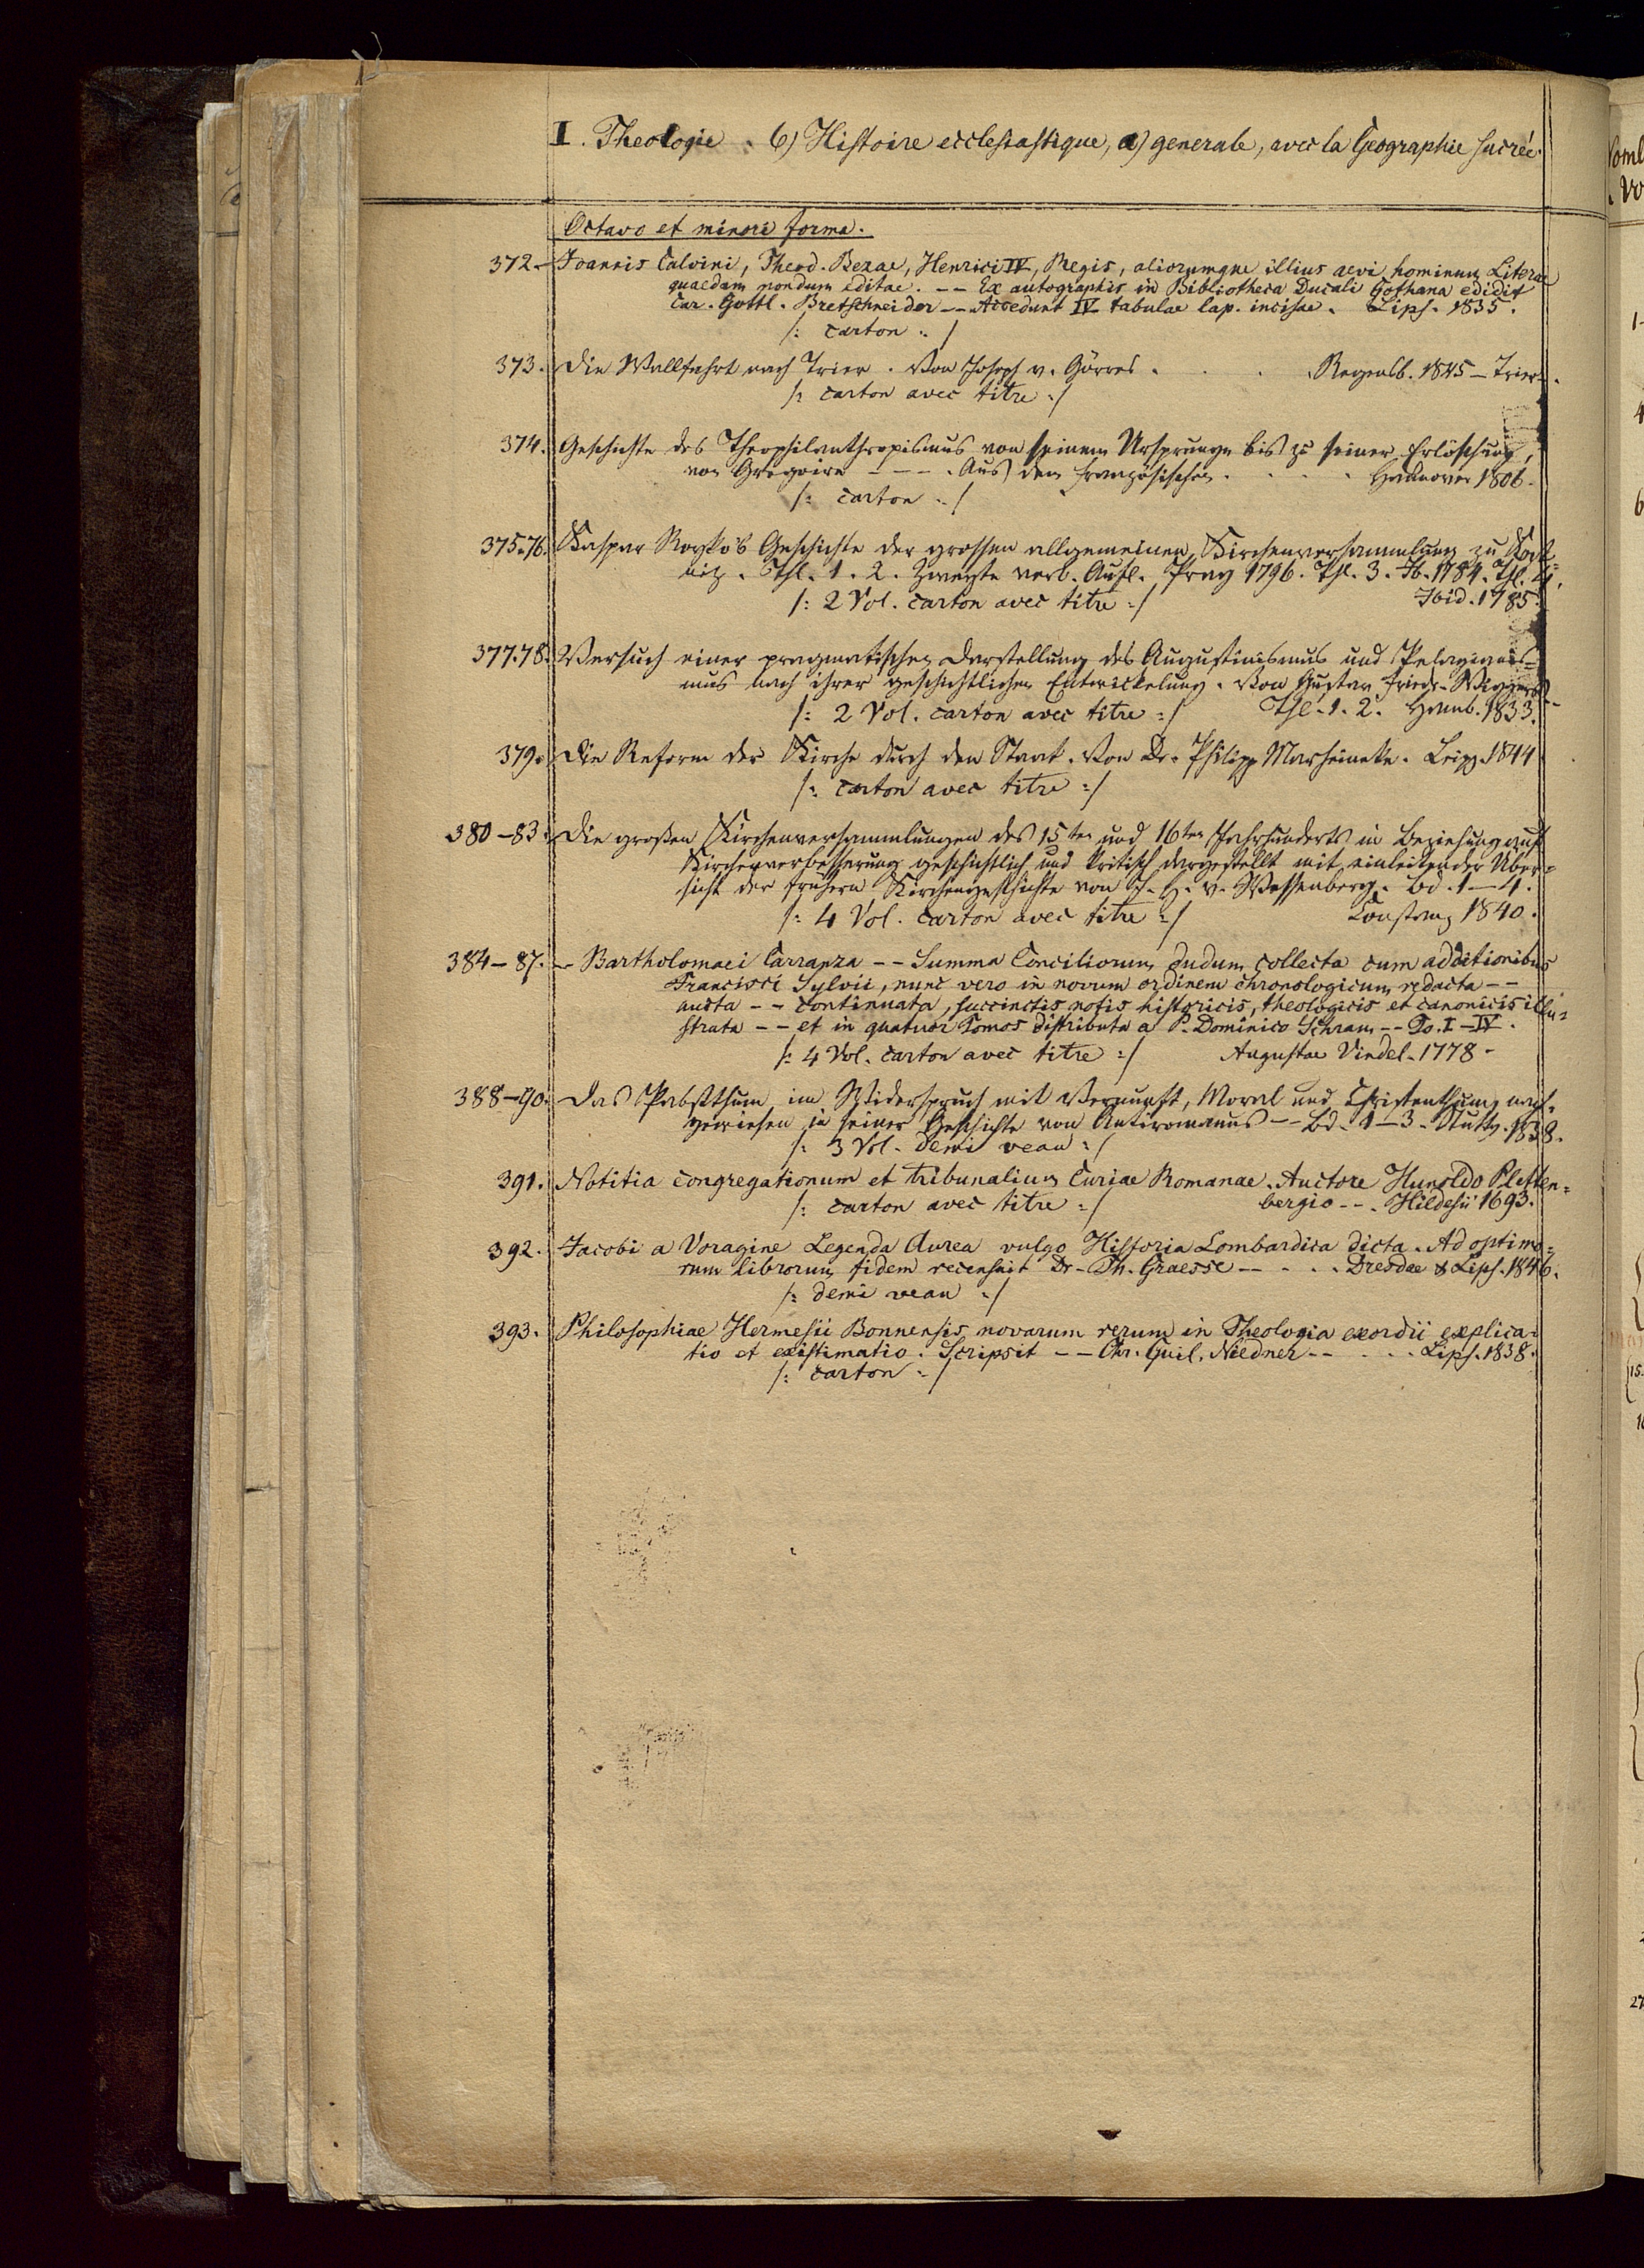 I. Theologie. 6) Histoire ecclesiastique, a) generale, avec la Geographie sacrée.
Octavo et minori forma.
372. Joannis Calvini, Theod. Bezae, Henrici IV, Regis, aliorumque illius aevi hominum Literae
quaedam nondum editae. -- Ex autographis in Bibliotheca Ducali Gothana edidit
Car. Gottl. Bretschneider -- Accedunt IV tabulae lap. incisae. Lips. 1835.
/: carton :/
373. Die Wallfahrt nach Trier. Von Joseph v. Görres. . . . Regensb. 1845 — Trier.
/: carton avec titre :/
374. Geschichte des Theophilanthropismus von seinem Ursprunge bis zu seiner Erlöschung,
von Gregoire - - - . Aus dem Französischen . . . . Hannover 1806.
/: carton :/
375-76. Kaspar Royko's Geschichte der grossen allgemeinen Kirchenversammlung zu Kost=
nitz. Thl. 1. 2. Zweyte verb. Aufl. Prag 1796. Thl. 3. Ib. 1784. Thl. 4.
/: 2 Vol. carton avec titre :/ Ibid. 1785.
377.78. Versuch einer pragmatischen Darstellung des Augustinismus und Pelagianis=
mus nach ihrer geschichtlichen Entwickelung. Von Gustav Friedr. Wiggers
/: 2 Vol. carton avec titre :/ Thl. 1. 2. Hamb. 1833.
379. Die Reform der Kirche durch den Staat. Von Dr. Philipp Marheineke. Leipz. 1844
/: carton avec titre :/
380-83. Die großen Kirchenversammlungen des 15ten und 16ten Jahrhunderts in Beziehung auf
Kirchenverbesserung geschichtlich und kritisch dargestellt mit einleitender Über=
sicht der frühern Kirchengeschichte von J. H. v. Wessenberg. Bd. 1—4.
/: 4 Vol. carton avec titre :/ Constanz 1840.
384-87. — Bartholomaei Carranza -- Summa Conciliorum dudum collecta cum additionibus
Francisci Sylvii, nunc vero in novum ordinem chronologicum redacta --
aucta -- continuata, succinctis notis historicis, theologicis et canonicis illu=
strata -- et in quatuor Tomos distributa a P. Dominico Schram -- To. I-IV.
/: 4 Vol. carton avec titre :/ Augustae Vindel. 1778.
388-90. Das Pabstthum im Widerspruch mit Vernunft, Moral und Christenthum, nach=
gewiesen in seiner Geschichte von Antiromanus -- Bd. 1—3. Stuttg. 1838.
/: 3 Vol. demi veau :/
391. Notitia congregationum et tribunalium Curiae Romanae. Auctore Hunoldo Pletten=
/: carton avec titre :/ bergio --. Hildesii 1693.
392. Jacobi a Voragine Legenda Aurea vulgo Historia Lombardica dicta. Ad optimo=
rum librorum fidem recensuit Dr. Th. Graesse -- . . . Dresdae & Lips. 1846.
/: demi veau :/
393. Philosophiae Hermesii Bonnensis novarum rerum in Theologia exordii explica=
tio et existimatio. Scripsit -- Chr. Guil. Niedner -- . . . Lips. 1838.
/: carton :/